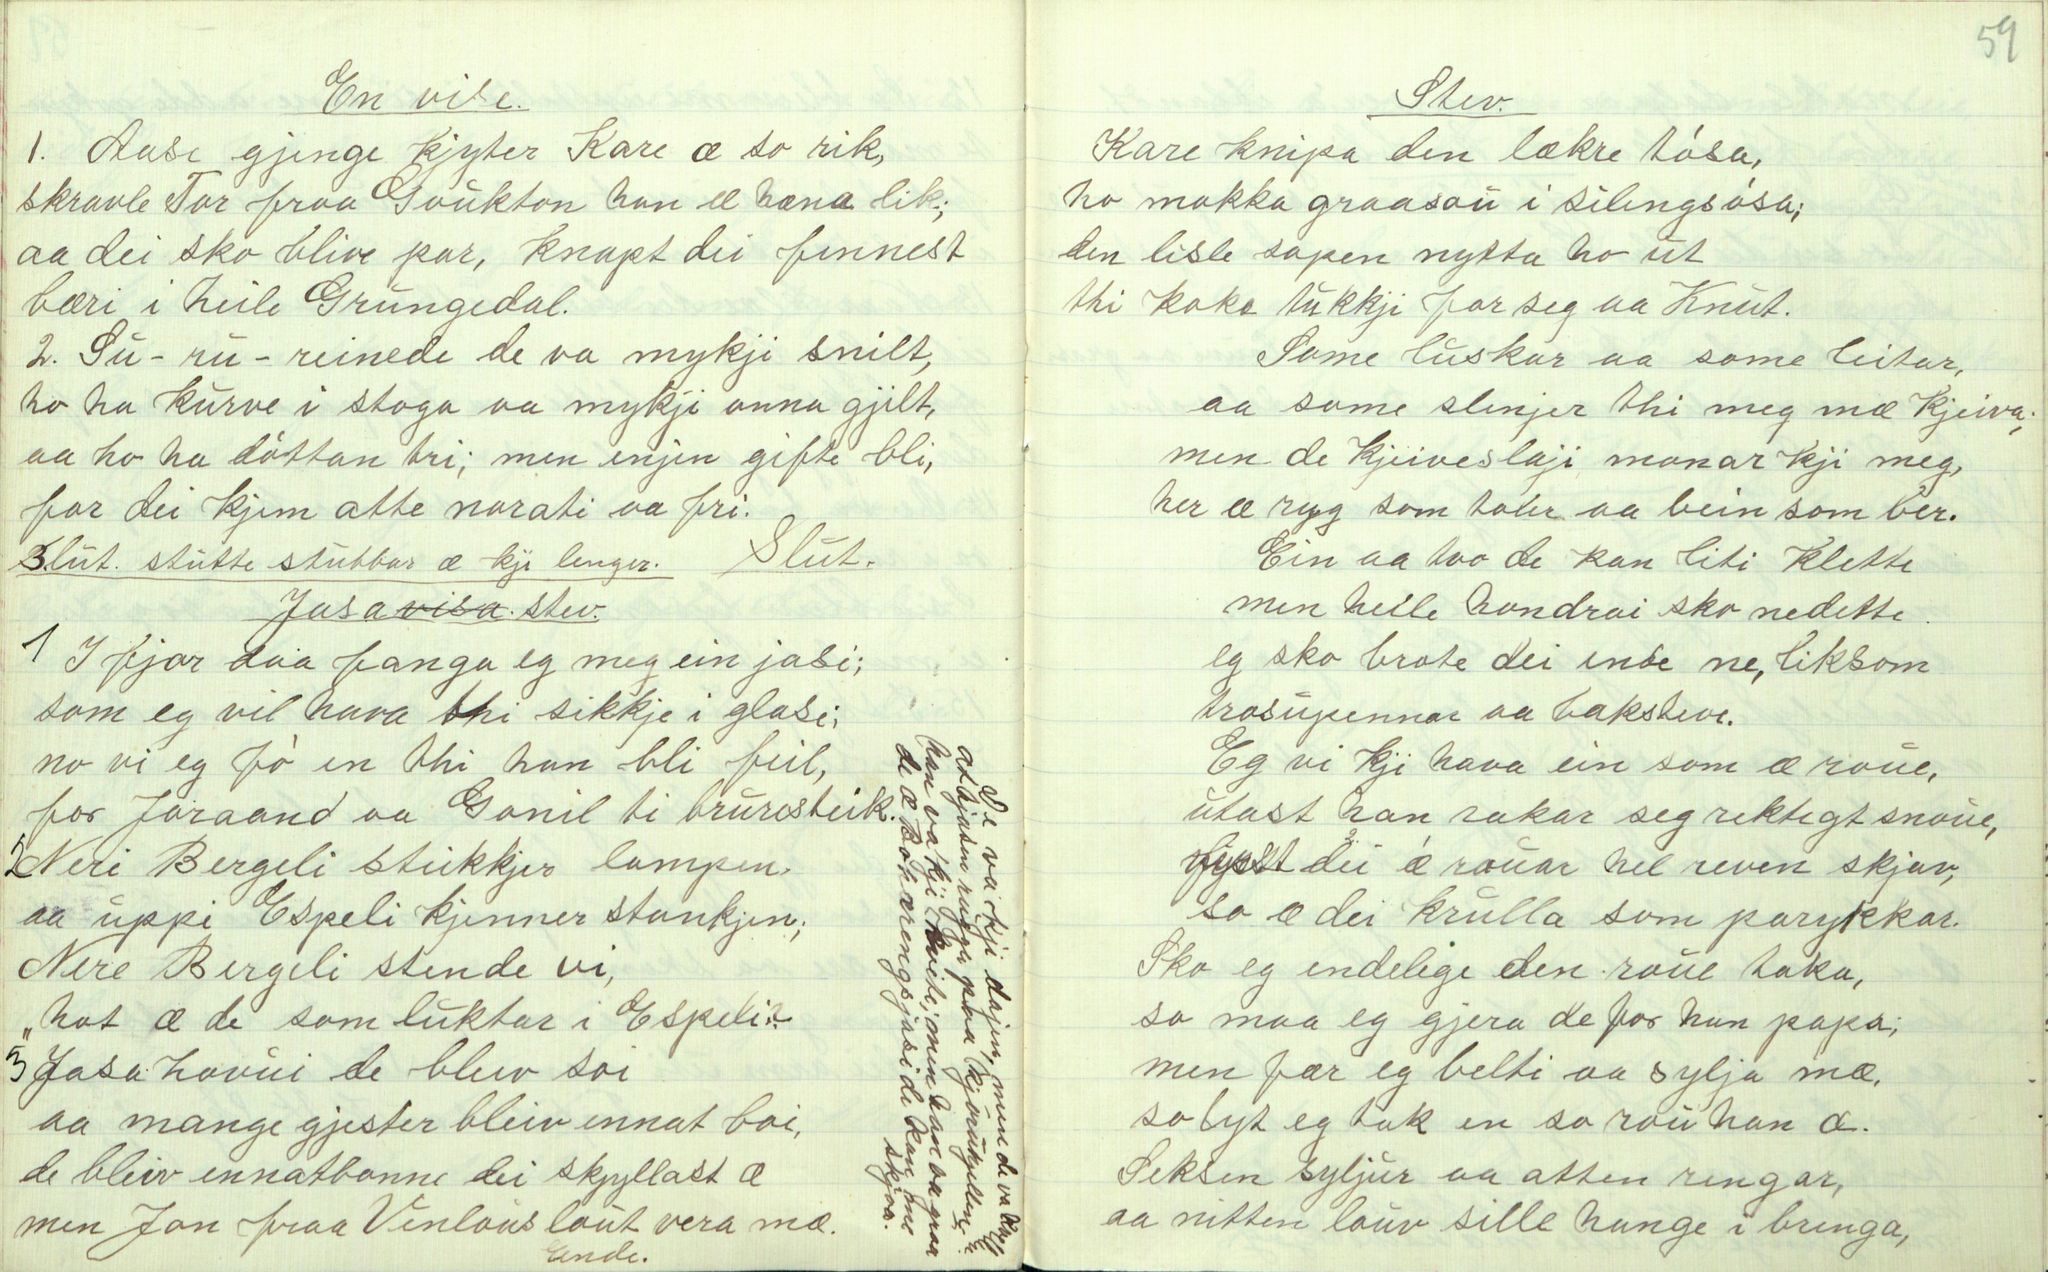 En vise.
1. Aase gjenge kjyter Kare æ so rik,
skravle Tor fraa Goukton han æ hæna lik;
aa dei sko blive par, knapt dei finnest
bæri i heile Grungedal.
2. Su-ru-reinede de va mykji snilt,
ho ha kurve i stoga aa mykji anna gjilt,
aa ho ha dóttan tri; men enjen gifte bli,
for dei kjem atte norati aa fri.
Slut. stutte stubbar æ kji lenger. Slut.
Jasavisa. stev.
1 I fjor daa fanga eg meg ein jasi;
som eg vil hava thi sikkje i glasi;
no vi eg fó en thi han bli feil,
for Joraand aa Gonil ti bruresteik.
2 Neri Bergeli stikkjer lampen.
aa uppi Espeli kjenner stankjen;
Nere Bergeli stende vi,
"hot æ de som luktar i Espeli?
3 Jasahovui de bleiv soi
aa mange gjester bleiv ennat boi,
de bleiv ennatbonne dei skyllast æ
men Jon fraa Vinlous lout vera mæ.
Ende.
De va kji dajin, men de va
Asbjøsenrugga paa
han va kji kvit, men han va graa
de æ Bohrengsjasi de kan me
skjøa.
59
Stev.
Kare knipa den lækre tósa,
ho makka graasau i silengsósa;
den lisle sapen nytta ho ut
thi koka tukkji for seg aa Knut.
Some luskar aa some leitar,
aa some slenjer thi meg mæ kjeiva;
men de kjeiveslaji monar kji meg,
her æ ryg som toler aa bein som ber.
Ein aa tvo de kan liti klette
men heile hondrai sko nedette.
eg sko brote dei ende ne, liksom
trosupennar aa baksteve.
Eg vi kji hava ein som æ roue,
utast han rakar seg rektigt snoue,
fyst dei æ rouar hel reven skjav,
so æ dei krulla som parykkar.
Sko eg endelige den roue taka,
so maa eg gjera de for han papa;
men fær eg belti aa sylja mæ,
so lyt eg tak en so rou han æ.
Seksen syljur aa atten rengar,
aa nitten louv sille hange i brenga,